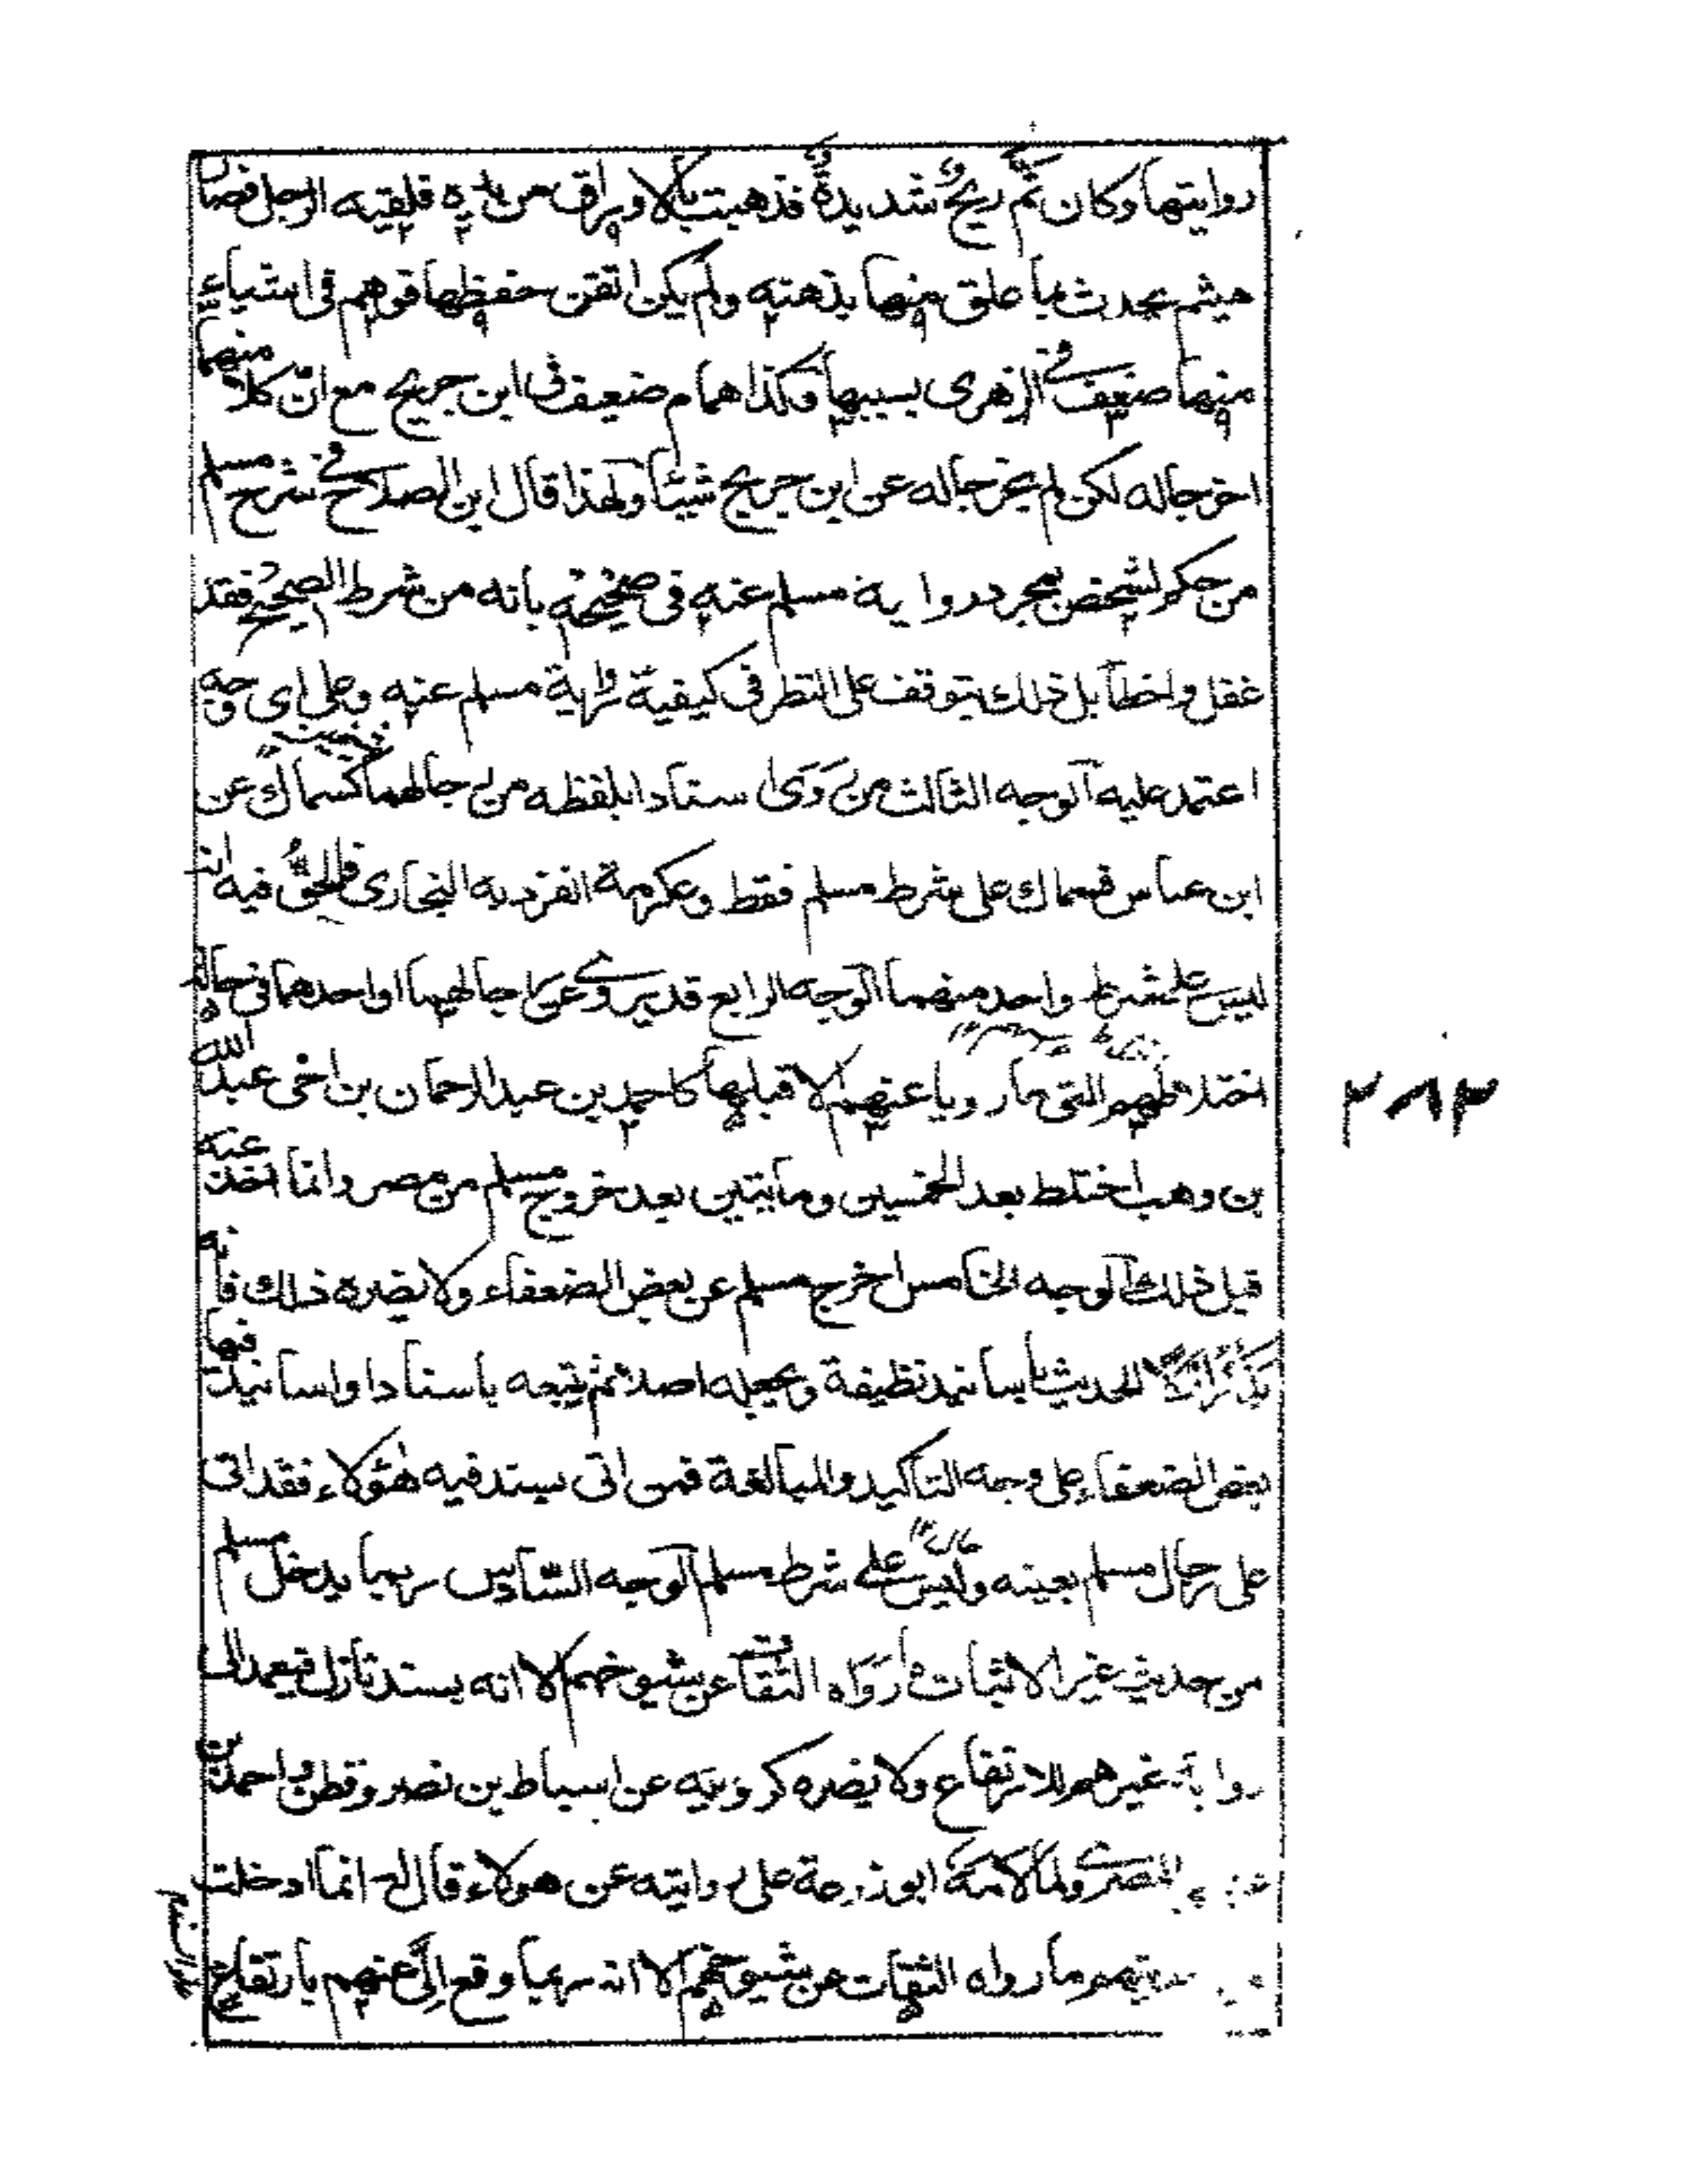 روايتها وكان ثم ريح شديدة فذهبت بالاوراق من يده فلقيه الرجل فصار
هيثم يحدث بما علق منها بذهنه ولم يكن اتقن حفظها فوهم في اشياء
منها ضعف في الزهري بسببها وكذا همام ضعيف في ابن جريج مع ان كلا منهما
اخرجا له لكن لم يخرجا له عن ابن جريج شيئا ولهذا قال ابن الصلاح في شرح مسلم
من حكم لشخص بمجرد رواية مسلم عنه في صحيحه بانه من شرط الصحيح فقد
غفل واخطأ بل ذلك يتوقف على النظر في كيفية رواية مسلم عنه وعلى اي وجه
اعتمد عليه الوجه الثالث من روى اسنادا بلفظه من رجالهما كسماك عن
ابن عباس فسماك على شرط مسلم فقط وعكرمة انفرد به البخاري فالحق فيه انه
ليس على شرط واحد منهما الوجه الرابع قد يروى عن رجالهما او احدهما في حالة
اختلاطهم التي ما رويا عنهم الا قبلها كاحمد بن عبد الرحمان بن اخي عبد الله
بن وهب اختلط بعد الخمسين ومأيتين بعد خروج مسلم من مصر وانما اخذ عنه
قبل ذلك الوجه الخامس اخرج مسلم عن بعض الضعفاء ولا يضره ذلك فانه
يذكر اولا الحديث باسانيد نظيفة ويجعله اصلا ثم يتبعه باسنادا واسانيد فيها
بعض الضعفاء على وجه التاكيد والمبالغة فمن اتى بسند فيه هؤلاء فقد اتى
على رجال مسلم بعينه وليس على شرط مسلم الوجه السادس ربما يدخل مسلم
من حديث غير الاثبات ما رواه الثقات عن شيوخهم الا انه بسند نازل فيعمد الى
رواية غيرهم للارتفاع ولا يضره كروايته عن اسباط بن نصر وقطن واحمد بن
المصري ولما لامه ابو زرعة على روايته عن هولاء قال له انما ادخلت
ما رواه الثقات عن شيوخهم الا انه ربما وقع الي عنهم بارتفاع
٢٨٣